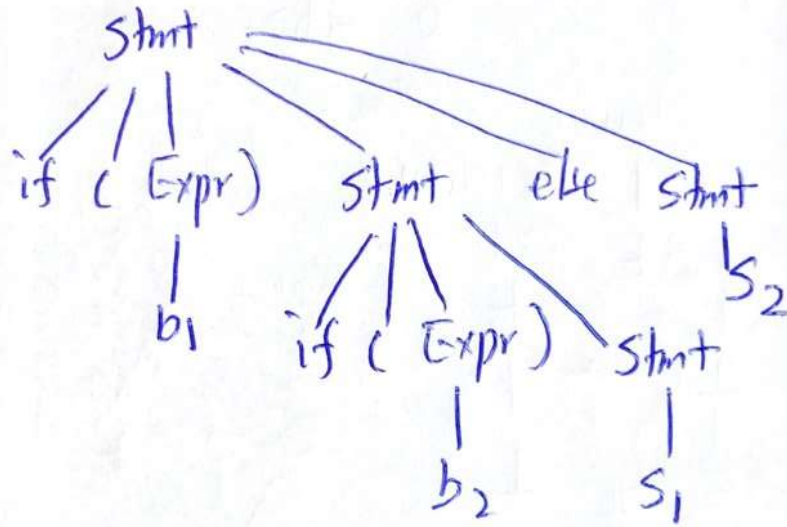 Stmt
if ( Expr) Stmt else Stmt
b1 S2
if ( Expr) Stmt
b2 S1